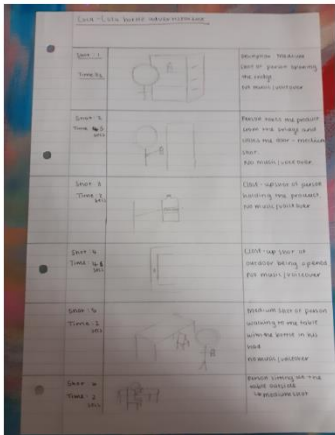 Coca-Cola bottle advertisement
Shot: 1
Time: 3
Description: Medium
shot of person opening
the fridge
No music/voiceover
Shot: 2
Time: 3
secs
Person takes the product
from the fridge and
closes the door - medium
shot.
No music/voiceover.
Shot: 3
Time: 3
secs
Close-up shot of person
holding the product.
No music/voiceover
Shot: 4
Time:
secs
Close-up shot of
outdoor being opened
No music/voiceover
Shot: 5
Time: 2
secs
Medium shot of person
walking to the table
with the bottle in his
hand
no music/voiceover
Shot: 6
Time: 2
secs
Person sitting at the
table outside
medium shot